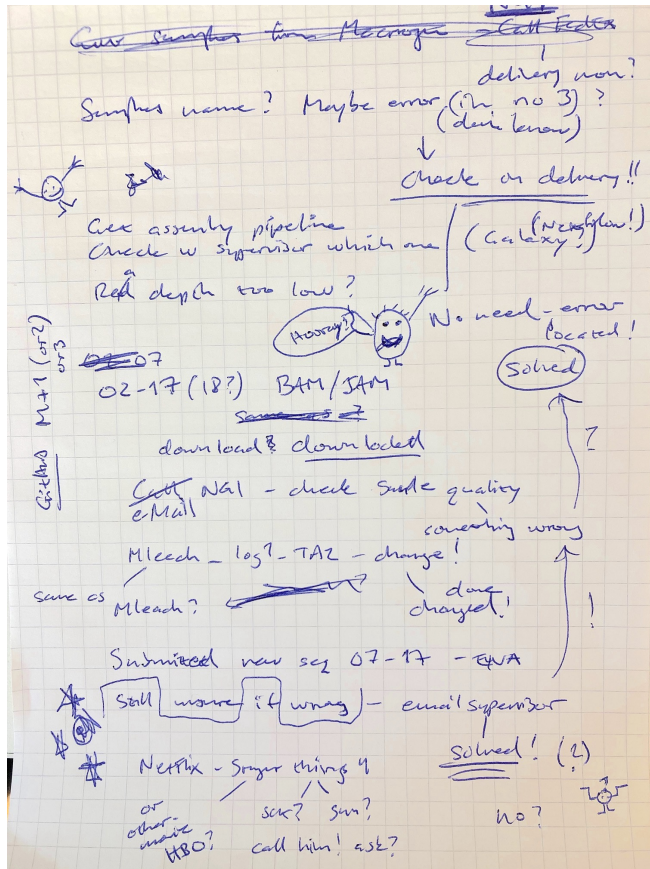 Call FedEx
delivery now?
Samples name? Maybe error (in no 3) ?
(dont know)
Check on delivery!!
assembly pipeline
Check w supervisor which one (Galaxy?) (Nextflow!)
Read depth too low?
Hooray!
No need - error
located!
Solved
GitHub M+1 (or 2)
or 3
07
02-17 (18?) BAM/SAM
Same as ?
download? downloaded
Call NGI - check sample quality
eMail
something wrong
?
Mleach - log? - TA2 - change!
same as Mleach?
done
changed!
!
Submitted new seq 07-17 -
Still if wrong) - email supervisor
solved! (?)
Netflix - things 4
or
other
movie
HBO?
sat? sun?
call him! ask?
no?